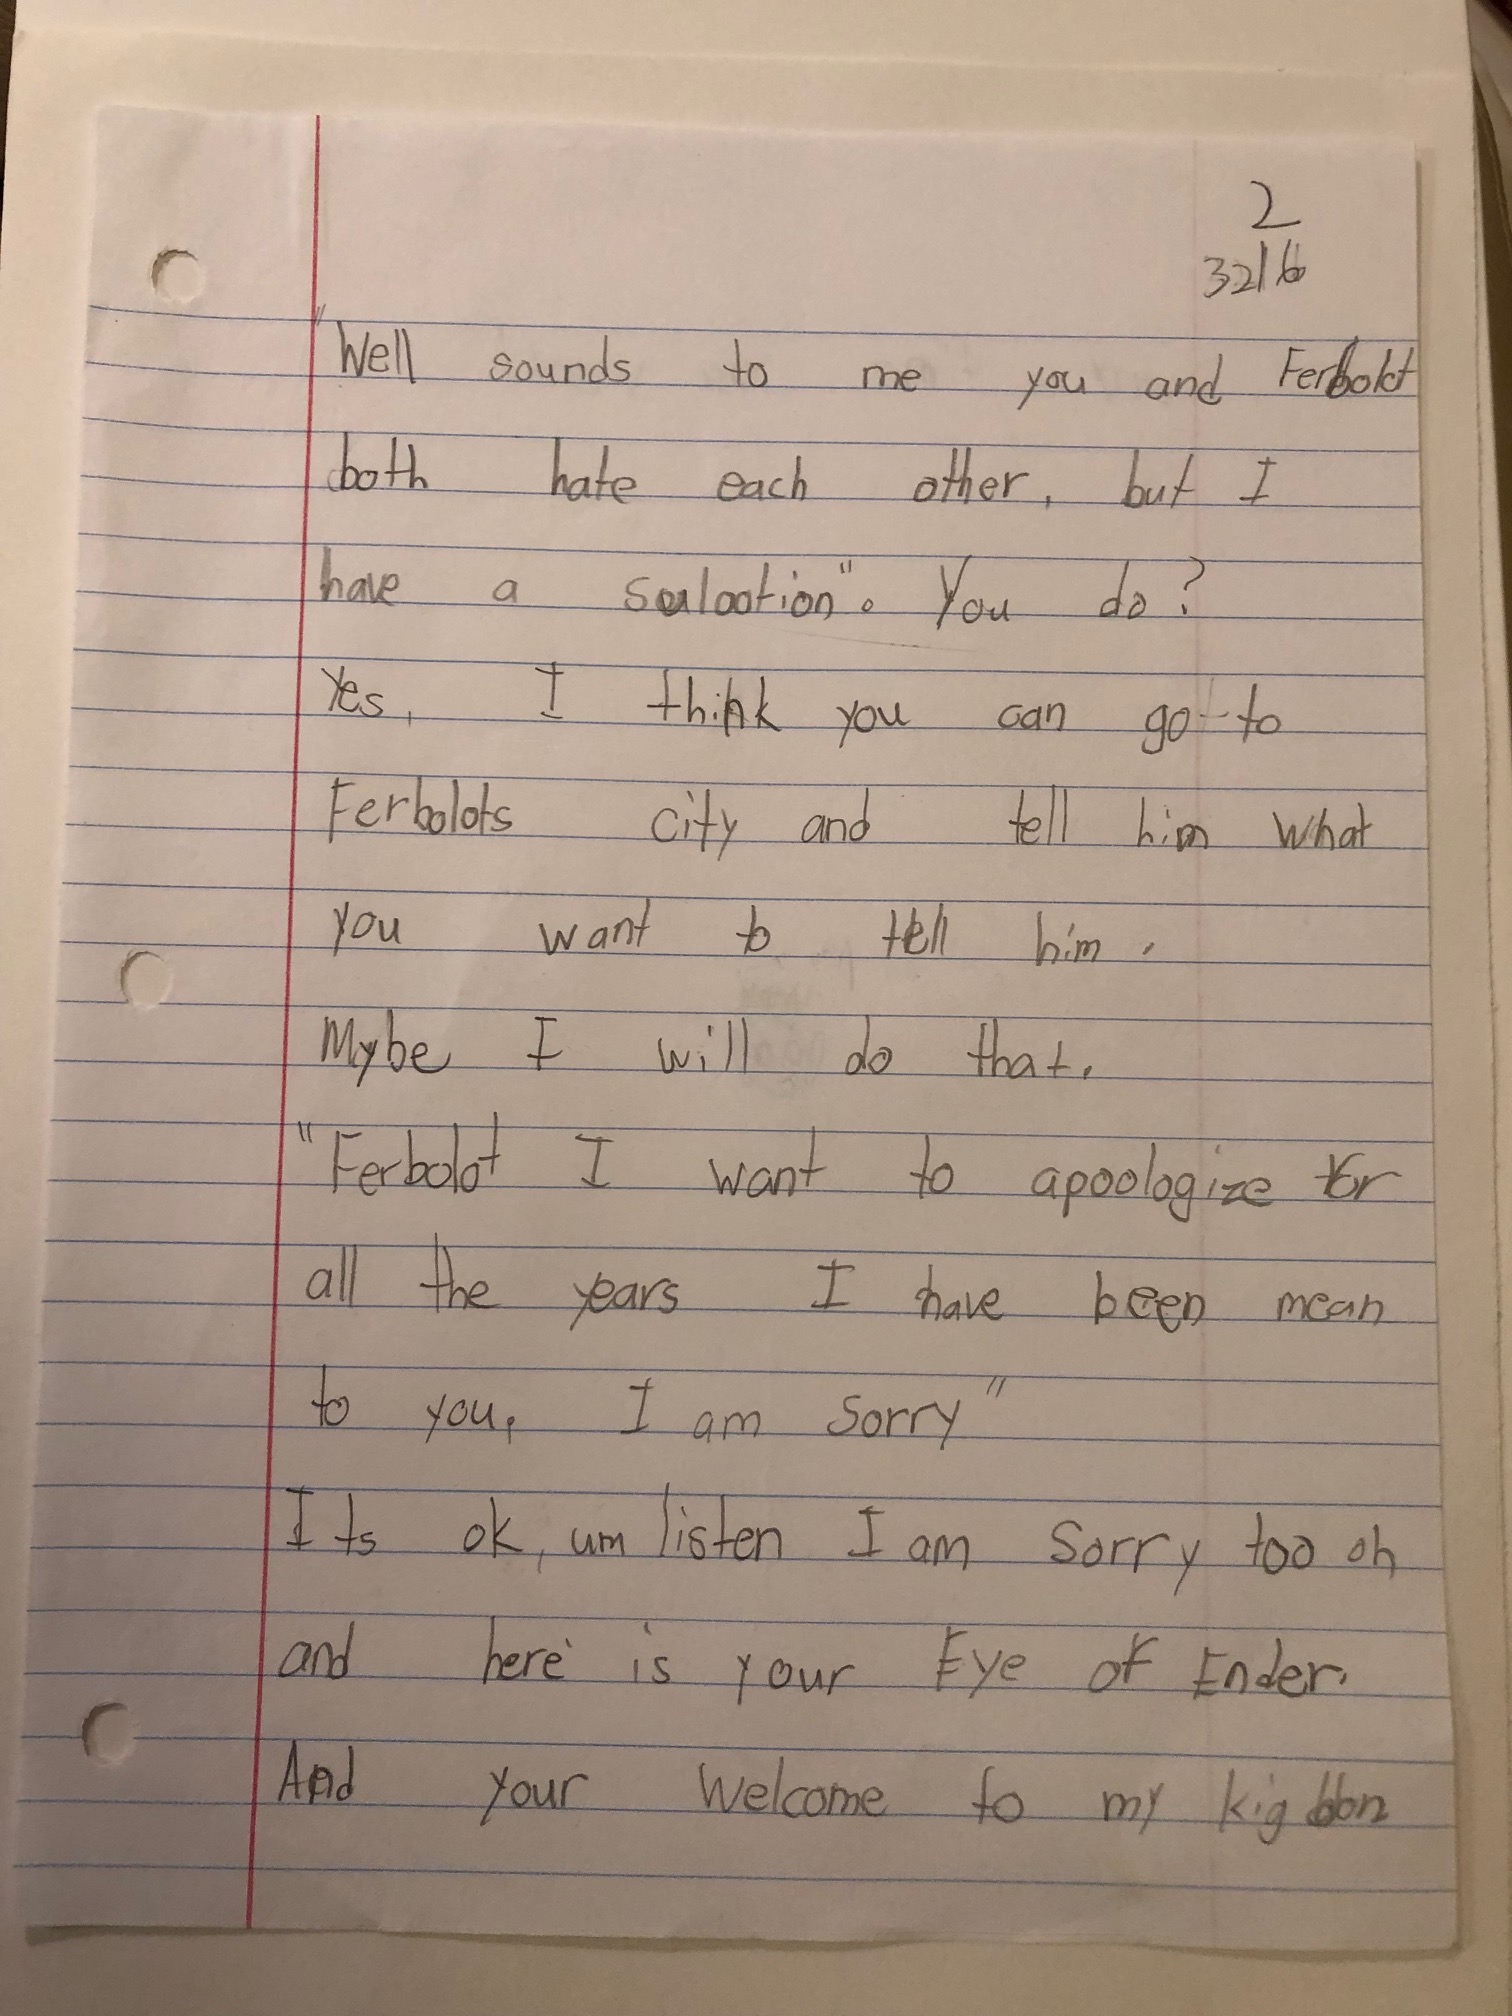 2
3216
"Well sounds to me you and Ferbolot
both hate each other, but I
have a sulootion". You do?
Yes, I think you can go to
Ferbolots city and tell him what
you want to tell him.
Mybe I will do that.
"Ferbolot I want to apoologize for
all the years I have been mean
to you, I am sorry"
Its ok, um listen I am sorry too oh
and here is your Eye of Ender.
And your welcome to my